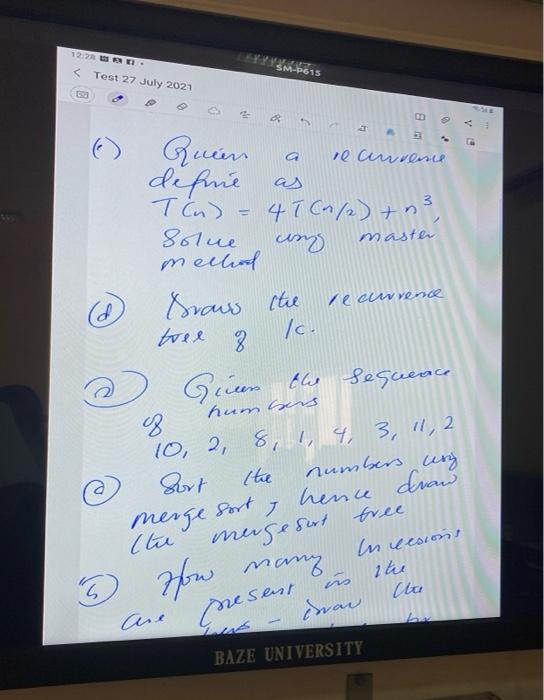 12:28
SM-P615
< Test 27 July 2021
(c) Given a recurrence
define as
T(n) = 4T(n/2) + n³,
Solve using master
method
(d) Draw the recurrence
tree of 1c.
(2) Given the sequence
of numbers
10, 2, 8, 1, 4, 3, 11, 2
(a) Sort the numbers using
merge sort, hence draw
the merge sort tree
(b) How many inversions
are present in the
draw the
BAZE UNIVERSITY